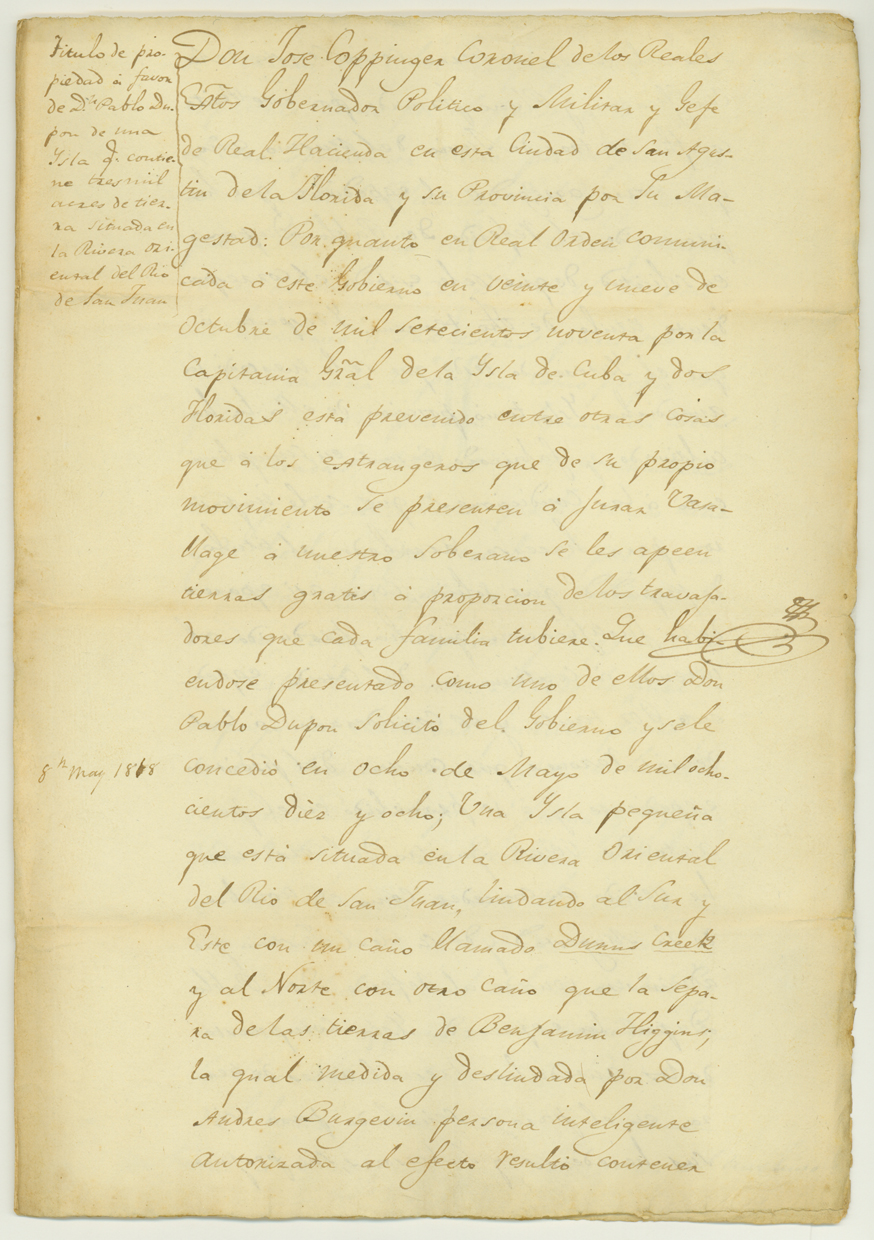 Titulo de pro-
piedad á favor
de Dn. Pablo Du-
pon de una
Ysla q. contie-
ne tres mil
acres de tier-
ra situada en
la Rivera ori-
ental del Rio
de San Juan
Don Jose Coppinger Coronel de los Reales
Extos Gobernador Politico y Militar y Gefe
de Real Hacienda en esta Ciudad de San Agus-
tin de la Florida y su Provincia por Su Ma-
gestad: Por quanto en Real Orden comuni-
cada á este Gobierno en veinte y nueve de
Octubre de mil setecientos noventa por la
Capitania Gral de la Ysla de Cuba y dos
Floridas está prevenido entre otras cosas
que á los extrangeros que de su propio
movimiento se presenten á Jurar Vasa-
llage á nuestro Soberano se les apeen
tierras gratis á proporcion de los travaja-
dores que cada familia tubiere. Que habi-
endose presentado como uno de ellos Don
Pablo Dupon solicitó del Gobierno y sele
8th May 1818
concedió en ocho de Mayo de mil ocho-
cientos diez y ocho; Una Ysla pequeña
que está situada en la Rivera Oriental
del Rio de San Juan, lindando al Sur y
Este con un caño llamado Dunns Creek
y al Norte con otro caño que la sepa-
ra de las tierras de Benjamin Higgins,
la qual medida y deslindada por Don
Andres Burgevin persona inteligente
autorizada al efecto resultó contener